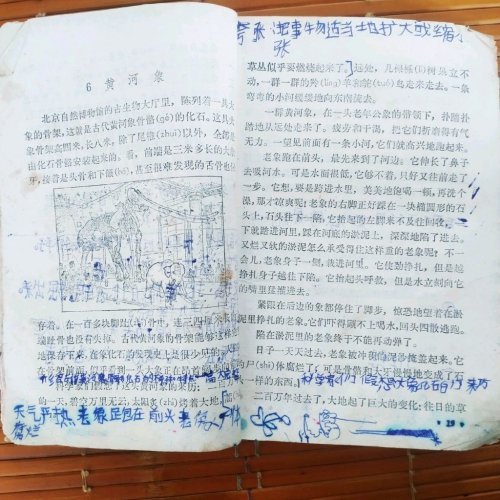 6 黄河象
北京自然博物馆的古生物大厅里，陈列着一具大
象的骨架，这就是古代黄河象骨骼(gé)的化石。这具
象骨架高四米，长八米，除了尾椎(zhuī)以外，全部是
由化石骨骼安装起来的。看，前端是三米多长的大
牙，接着是头骨和下颌(hé)，甚至很难发现的舌骨也
存着。在一百多块脚趾
端趾骨也没有丢失。古代黄河象的骨骼能够这样
地保存下来，在象化石的发现史上是很少见的。
的一天，碧空万里无云，太阳炙(zhì)烤着大地。
天气严热 老象正走在前头
腐烂
夸张：把事物适当地扩大或缩小
张
草丛似乎要燃烧起来了。远处，几棵栎(lì)树耸立不
动，一群一群的羚(líng)羊和鸵(tuó)鸟走来走去。一条
弯弯的小河缓缓地向东南流去。
一群黄河象，在一头老年公象的带领下，扑踏扑
踏地从远处走来了。疲劳和干渴，把它们折磨得有气
无力。一望见前面有一条小河，它们就高兴地跑起来。
老象跑在前头，最先来到了河边。它伸长了鼻子
去吸河水，可是水面很低，它够不着，只好又往前走了
一步。它想，要是蹚进水里，美美地饱喝一顿，再洗个
澡，那才凉爽呢！老象的右脚正好踩在一块椭圆形的石
头上，石头往下一陷，它抬起的左脚来不及往回收，一
下就踏进河里，踩在河底的淤泥上，深深地陷了进去。
又烂又软的淤泥怎么承受得住这样重的老象呢，不一
会儿，老象身子一侧，栽进河里。它使劲挣扎，但是越
挣扎身子越往下陷。它抬起头呼救，但是水立刻向它
的嘴里猛灌进去。
紧跟在后边的象都停住了脚步，惊恐地望着在淤
泥里挣扎的老象。它们吓得顾不上喝水，回头四散逃跑。
陷在淤泥里的老象终于不能再动弹了。
日子一天天过去，老象被冲
(shī)体腐烂了，可是骨骼和大牙慢慢地变成了石
一样的东西。
二百万年过去了，大地起了巨大的变化：往日的
29